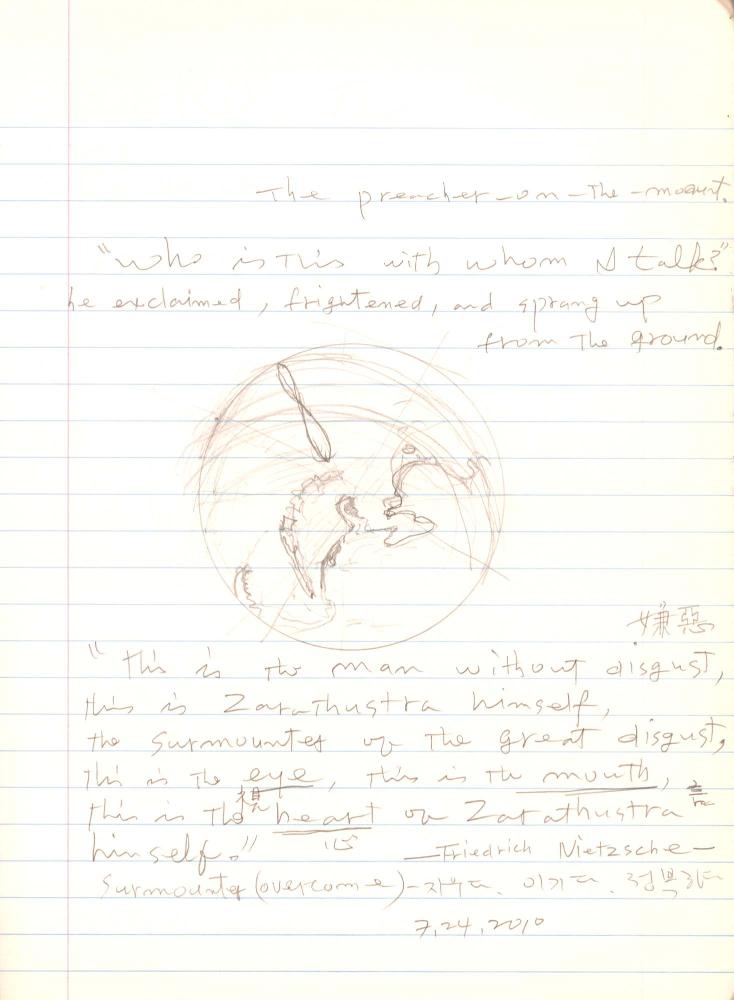 The preacher-on-the-mount.
"Who is this with whom I talk?"
he exclaimed, frightened, and sprang up
from the ground.
嫌惡
"this is the man without disgust,
this is Zarathustra himself,
the surmounter of the great disgust,
this is the eye, this is the mouth,
視
this is the heart of Zarathustra
心
himself." —Friedrich Nietzsche—
Surmounter (overcome) - 이기다. 정복하다
7.24.2010